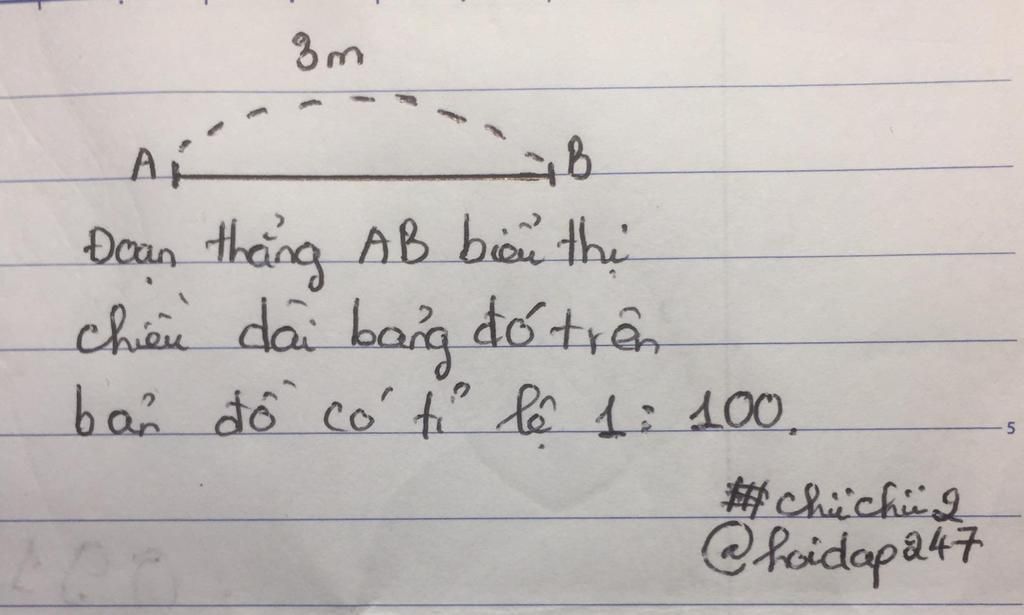 3m
A B
Đoạn thẳng AB biểu thị
chiều dài bảng đó trên
bản đồ có tỉ lệ 1 : 100.
5
#chiichii2
@hoidap247